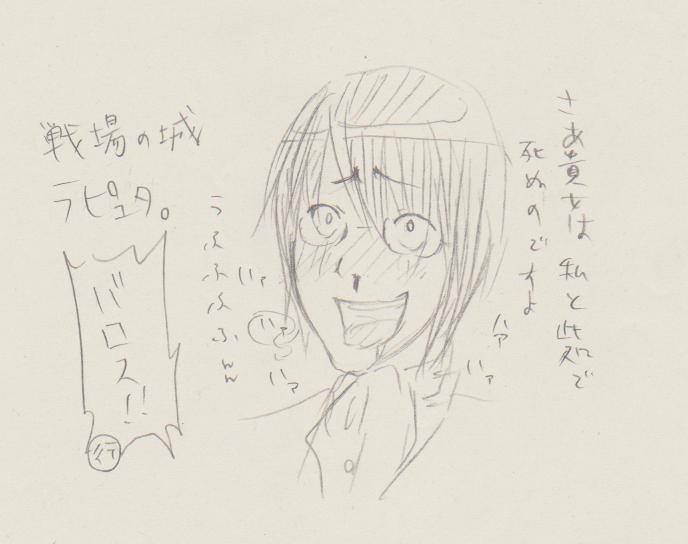 さあ貴女は私と此処で
死ぬのですよ
ハァ
ハァ
うふふふふんん
ハァ
ハァ
ハァ
戦場の城
ラピュタ。
バロス!!
行